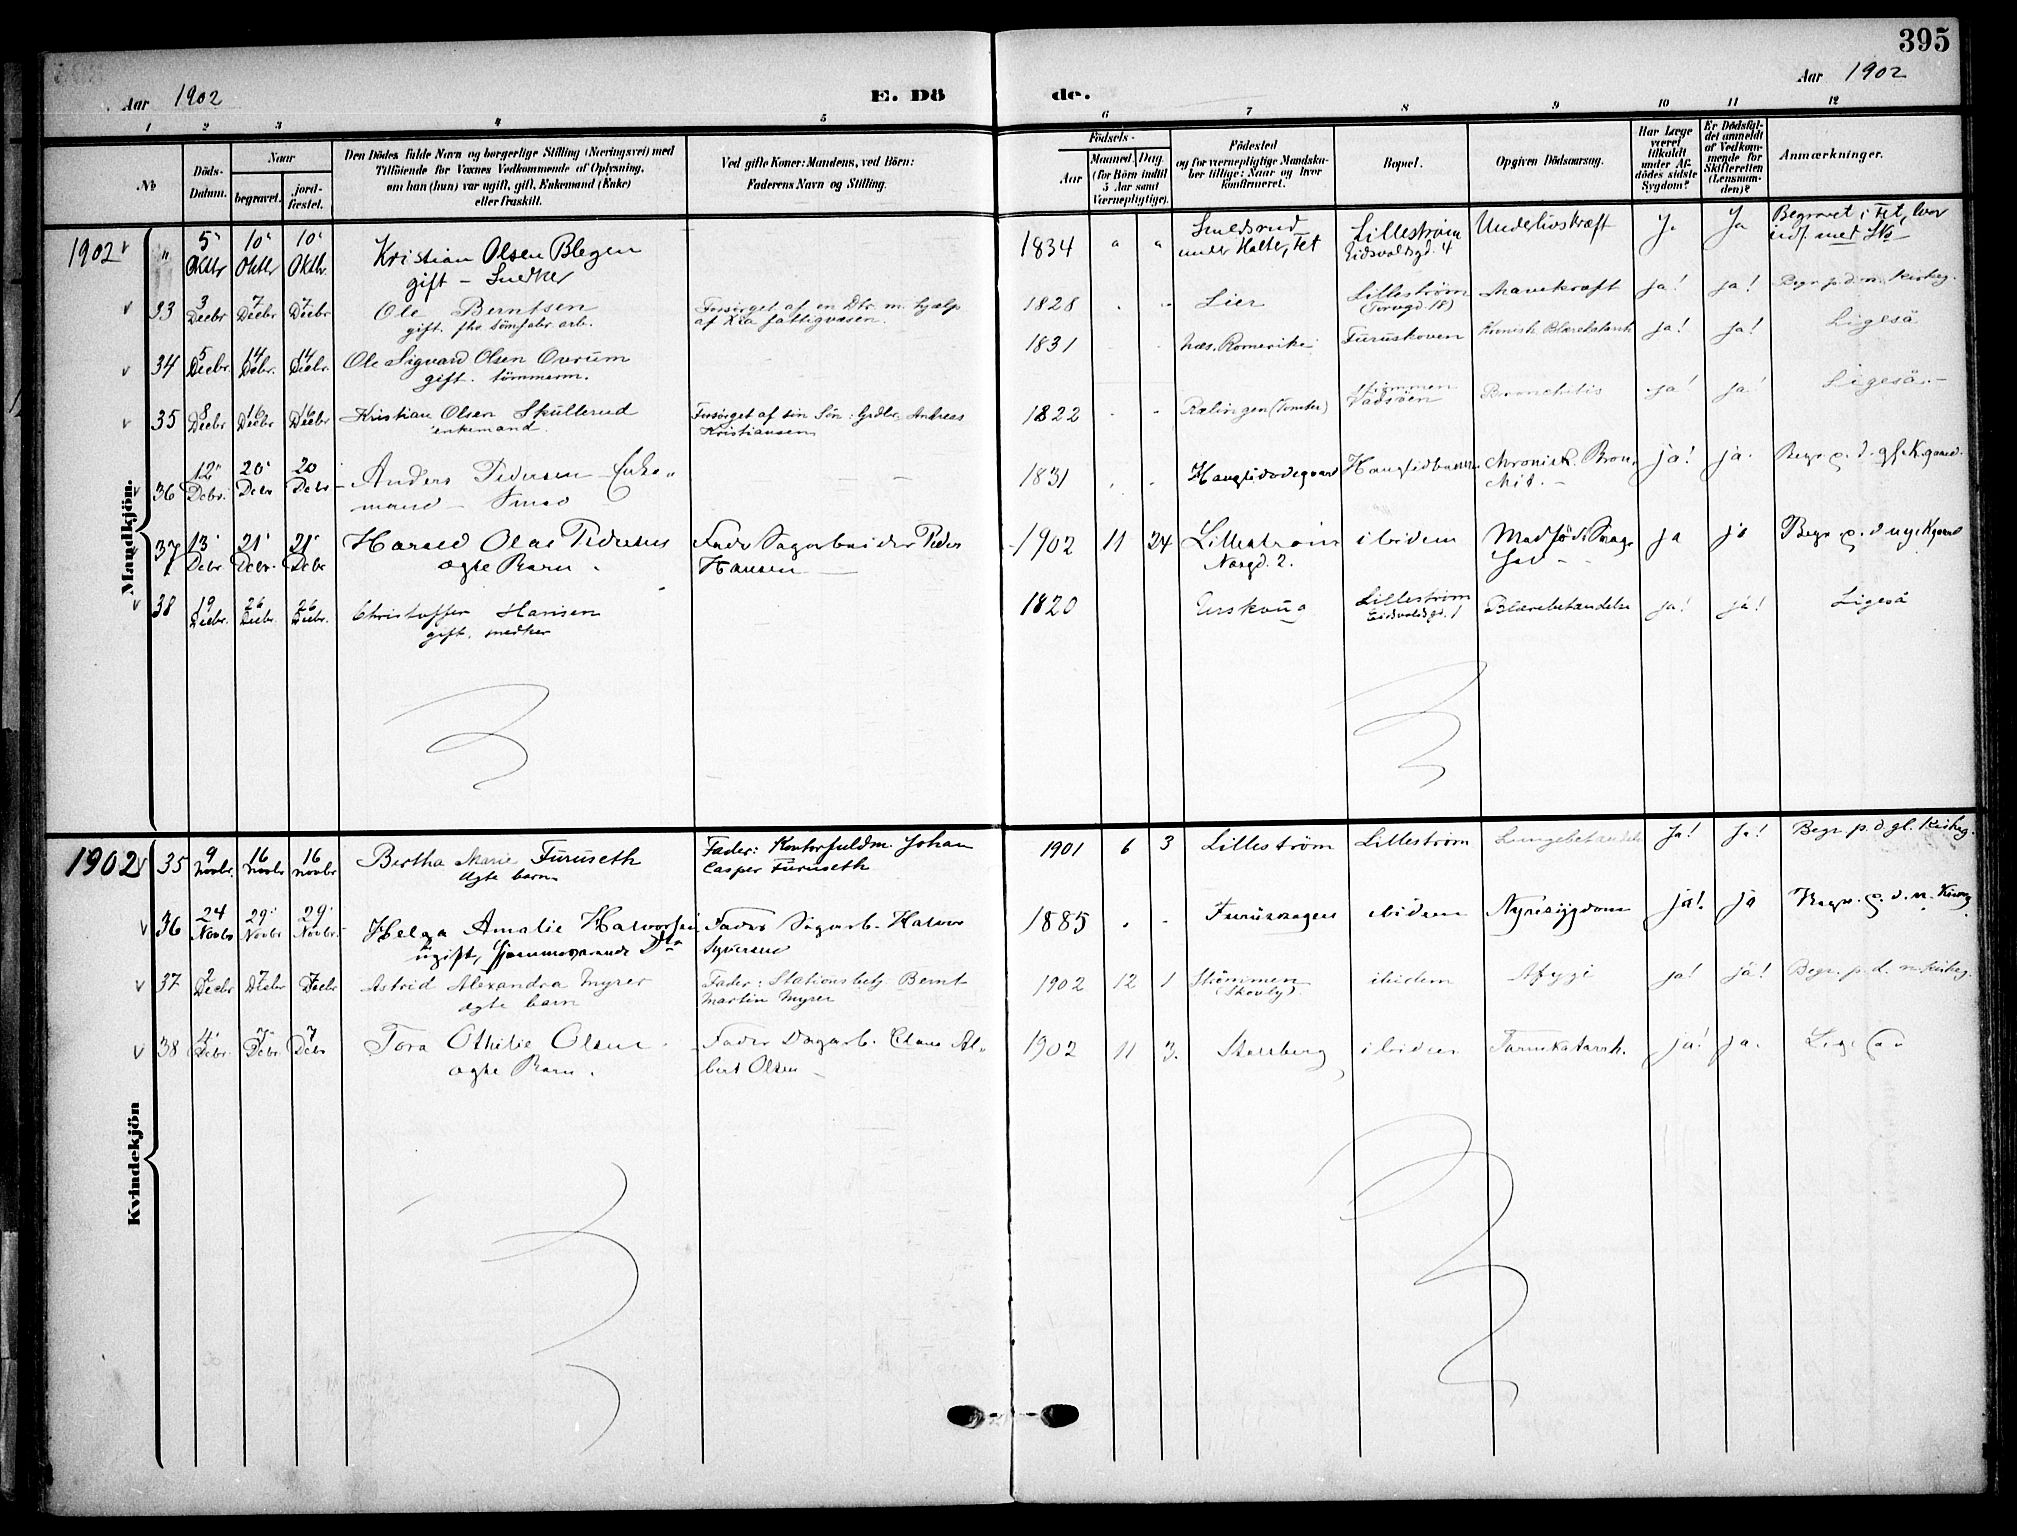 395
Aar 1902
E. Dö
de.
Aar 1902
1 2 3 4 5 6 7 8 9 10 11 12
No
Döds-Datum.
Naar
begravet.
jord-fæstet.
Den Dödes fulde Navn og borgerlige Stilling (Næringsvei) med
Tilföiende for Voxnes Vedkommende af Oplysning,
om han (hun) var ugift, gift, Enkemand (Enke)
eller fraskilt.
Ved gifte Koner: Mandens, ved Börn:
Faderens Navn og Stilling.
Födsels-
Aar
Maaned. Dag.
(for Börn indtil
5 Aar samt
Værnepligtige).
Födested
og for værnepligtige Mandska-
ber tillige: Naar og hvor
konfirmeret.
Bopæl.
Opgiven Dödsaarsag.
Har Læge
været
tilkaldt
under Af-
dödes sidste
Sygdom?
Er Dödsfal-
det anmeldt
af Vedkom-
mende for
Skifteretten
(Lensman-
den)?
Anmærkninger.
Mandkjön.
1902 " 5 Oktbr 10 Oktbr 10 Oktbr. Kristian Olsen Blegen
gift - Snedker
1834 " " under Halter, Fet Lillestrøm Eidsvoldsgd. 4 Underlivskræft Ja Ja Begravet i Fet, hvor
indf. med No
33 3 Decbr 7 Decbr 7 Decbr Ole Berntsen
gift. fhv. sömfabr. arb.
Forsörget af en Dtr. m. hjælp
af Kra fattigvæsen.
1828 Lier Lilleström (Torvgd. 18) Mavekræft ja! ja! Begr. p. d. n. kirkeg.
34 5 Decbr. 14 Debr. 14 Decbr. Ole Sigvard Olsen Ovrum
gift. tömmerm.
1831 Næs. Romerike Furuskoven Kronisk Blærekatarrh ja! ja! Ligeså
35 8 Decbr 16 Decbr 16 Decbr Kristian Olsen Skullerud
enkemand.
Forsörget af sin Sön: Grdbr. Andreas
Kristiansen
1822 Rælingen (Tomter) Strömmen Vadsöen Bronchitis ja! ja! Ligeså.-
36 12 Debr. 20 Debr 20 Debr Anders Pedersen - Enke-
mand - Smed
1831 Haugtidbakken chronisk. Bron-
chit. - ja! ja. Begr. p. d. gl. K.gaard.
37 13 Debr 21 Debr. 21 Debr Harald Olaf Pedersen
ægte Barn.
Fader Sagarbeider Peder
Hansen
1902 11 24 Lilleström
Norgd. 2. ibidem Medfödt Svag-
hed - ja ja Begr. p. d. nye Kgaard
38 19 Decbr. 26 Decbr. 26 Decbr. Christoffer Hansen
gift.
1820 Urskoug Lilleström Eidsvoldsgd. 1 Blærebetændelse ja! ja! Ligeså
Kvindekjön
1902 35 9 Novbr. 16 Novbr 16 Novbr Bertha Marie Furuseth
ægte barn.
Fader: Kontorfuldm. Johan
Casper Furuseth
1901 6 3 Lilleström Lilleström Lungebetændelse Ja! Ja! Begr. p. d. gl. Kirkeg.
36 24 Novbr 29 Novbr 29 Novbr. Helga Amalie Halvorsen
ugift, hjemmeværende Dtr
Fader Sagarb. Halvor
Syversen
1885 ibidem Nyresygdom ja! ja Begr. p. d. n. Kirkeg.
37 2 Decbr 7 Decbr 7 Decbr Astrid Alexandra Myrer
ægte barn
Fader: Stationsbetj. Bernt
Martin Myrer
1902 12 1 Strömmen
(Skovly). ibidem Afygi ja! ja! Begr. p. d. n. kirkeg.
38 4 Debr. 7 Debr. 7 Debr Tora Othilie Olsen
ægte Barn.
Fader Dagarb. Claus Al-
bert Olsen
1902 11 3. Stalsberg ibidem Tarmkatarrh. ja! ja. Ligesaa